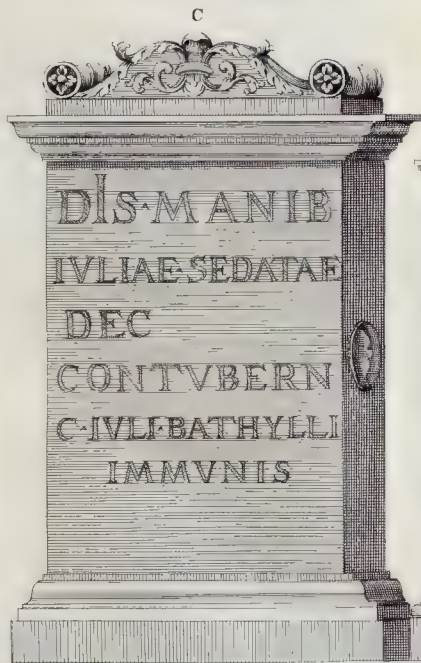 C
DIS·MANIB
IVLIAE·SEDATAE
DEC
CONTVBERN
C·IVLI·BATHYLLI
IMMVNIS